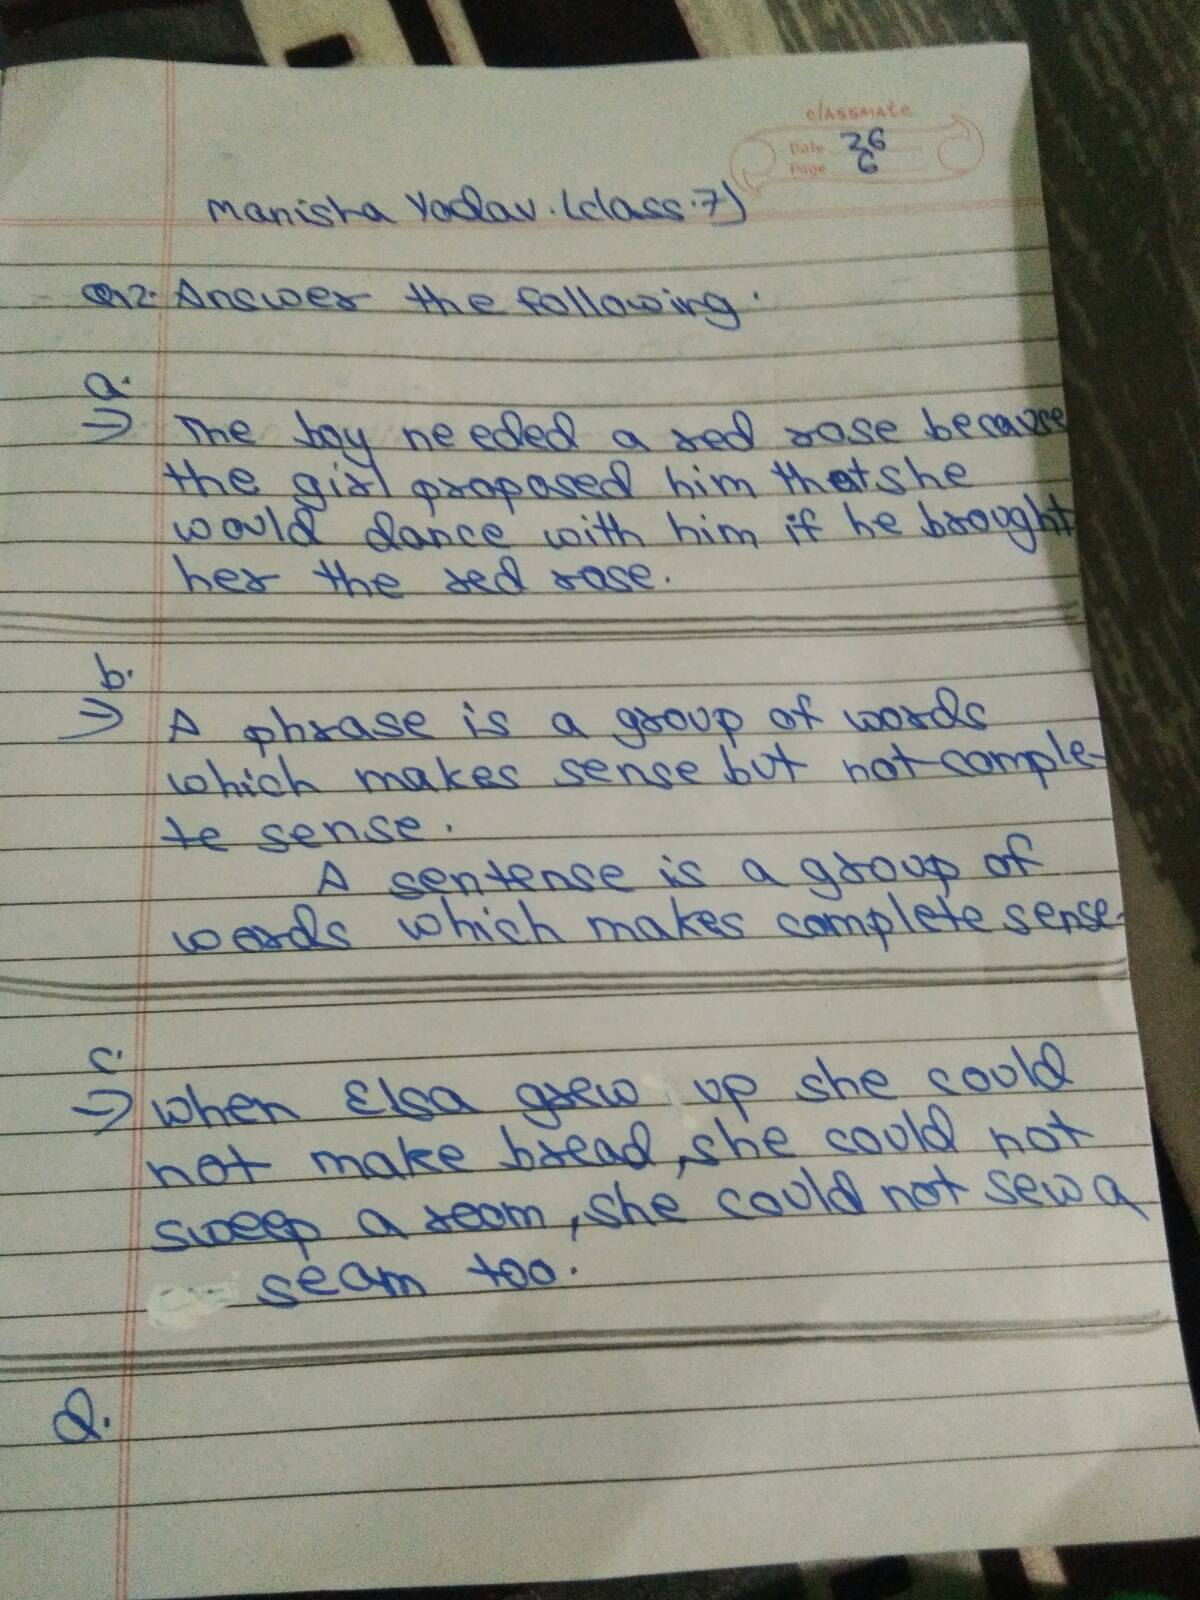 classmate
Date 26
Page 6
Manisha Yadav. (class.7)
Qn2. Answer the following.
a.
⇒ The boy needed a red rose because
the girl proposed him that she
would dance with him if he brought
her the red rose.
b.
⇒ A phrase is a group of words
which makes sense but not comple-
te sense.
A sentense is a group of
words which makes complete sense.
c.
⇒ When Elsa grew up she could
not make bread, she could not
sweep a room, she could not sew a
seam too.
d.